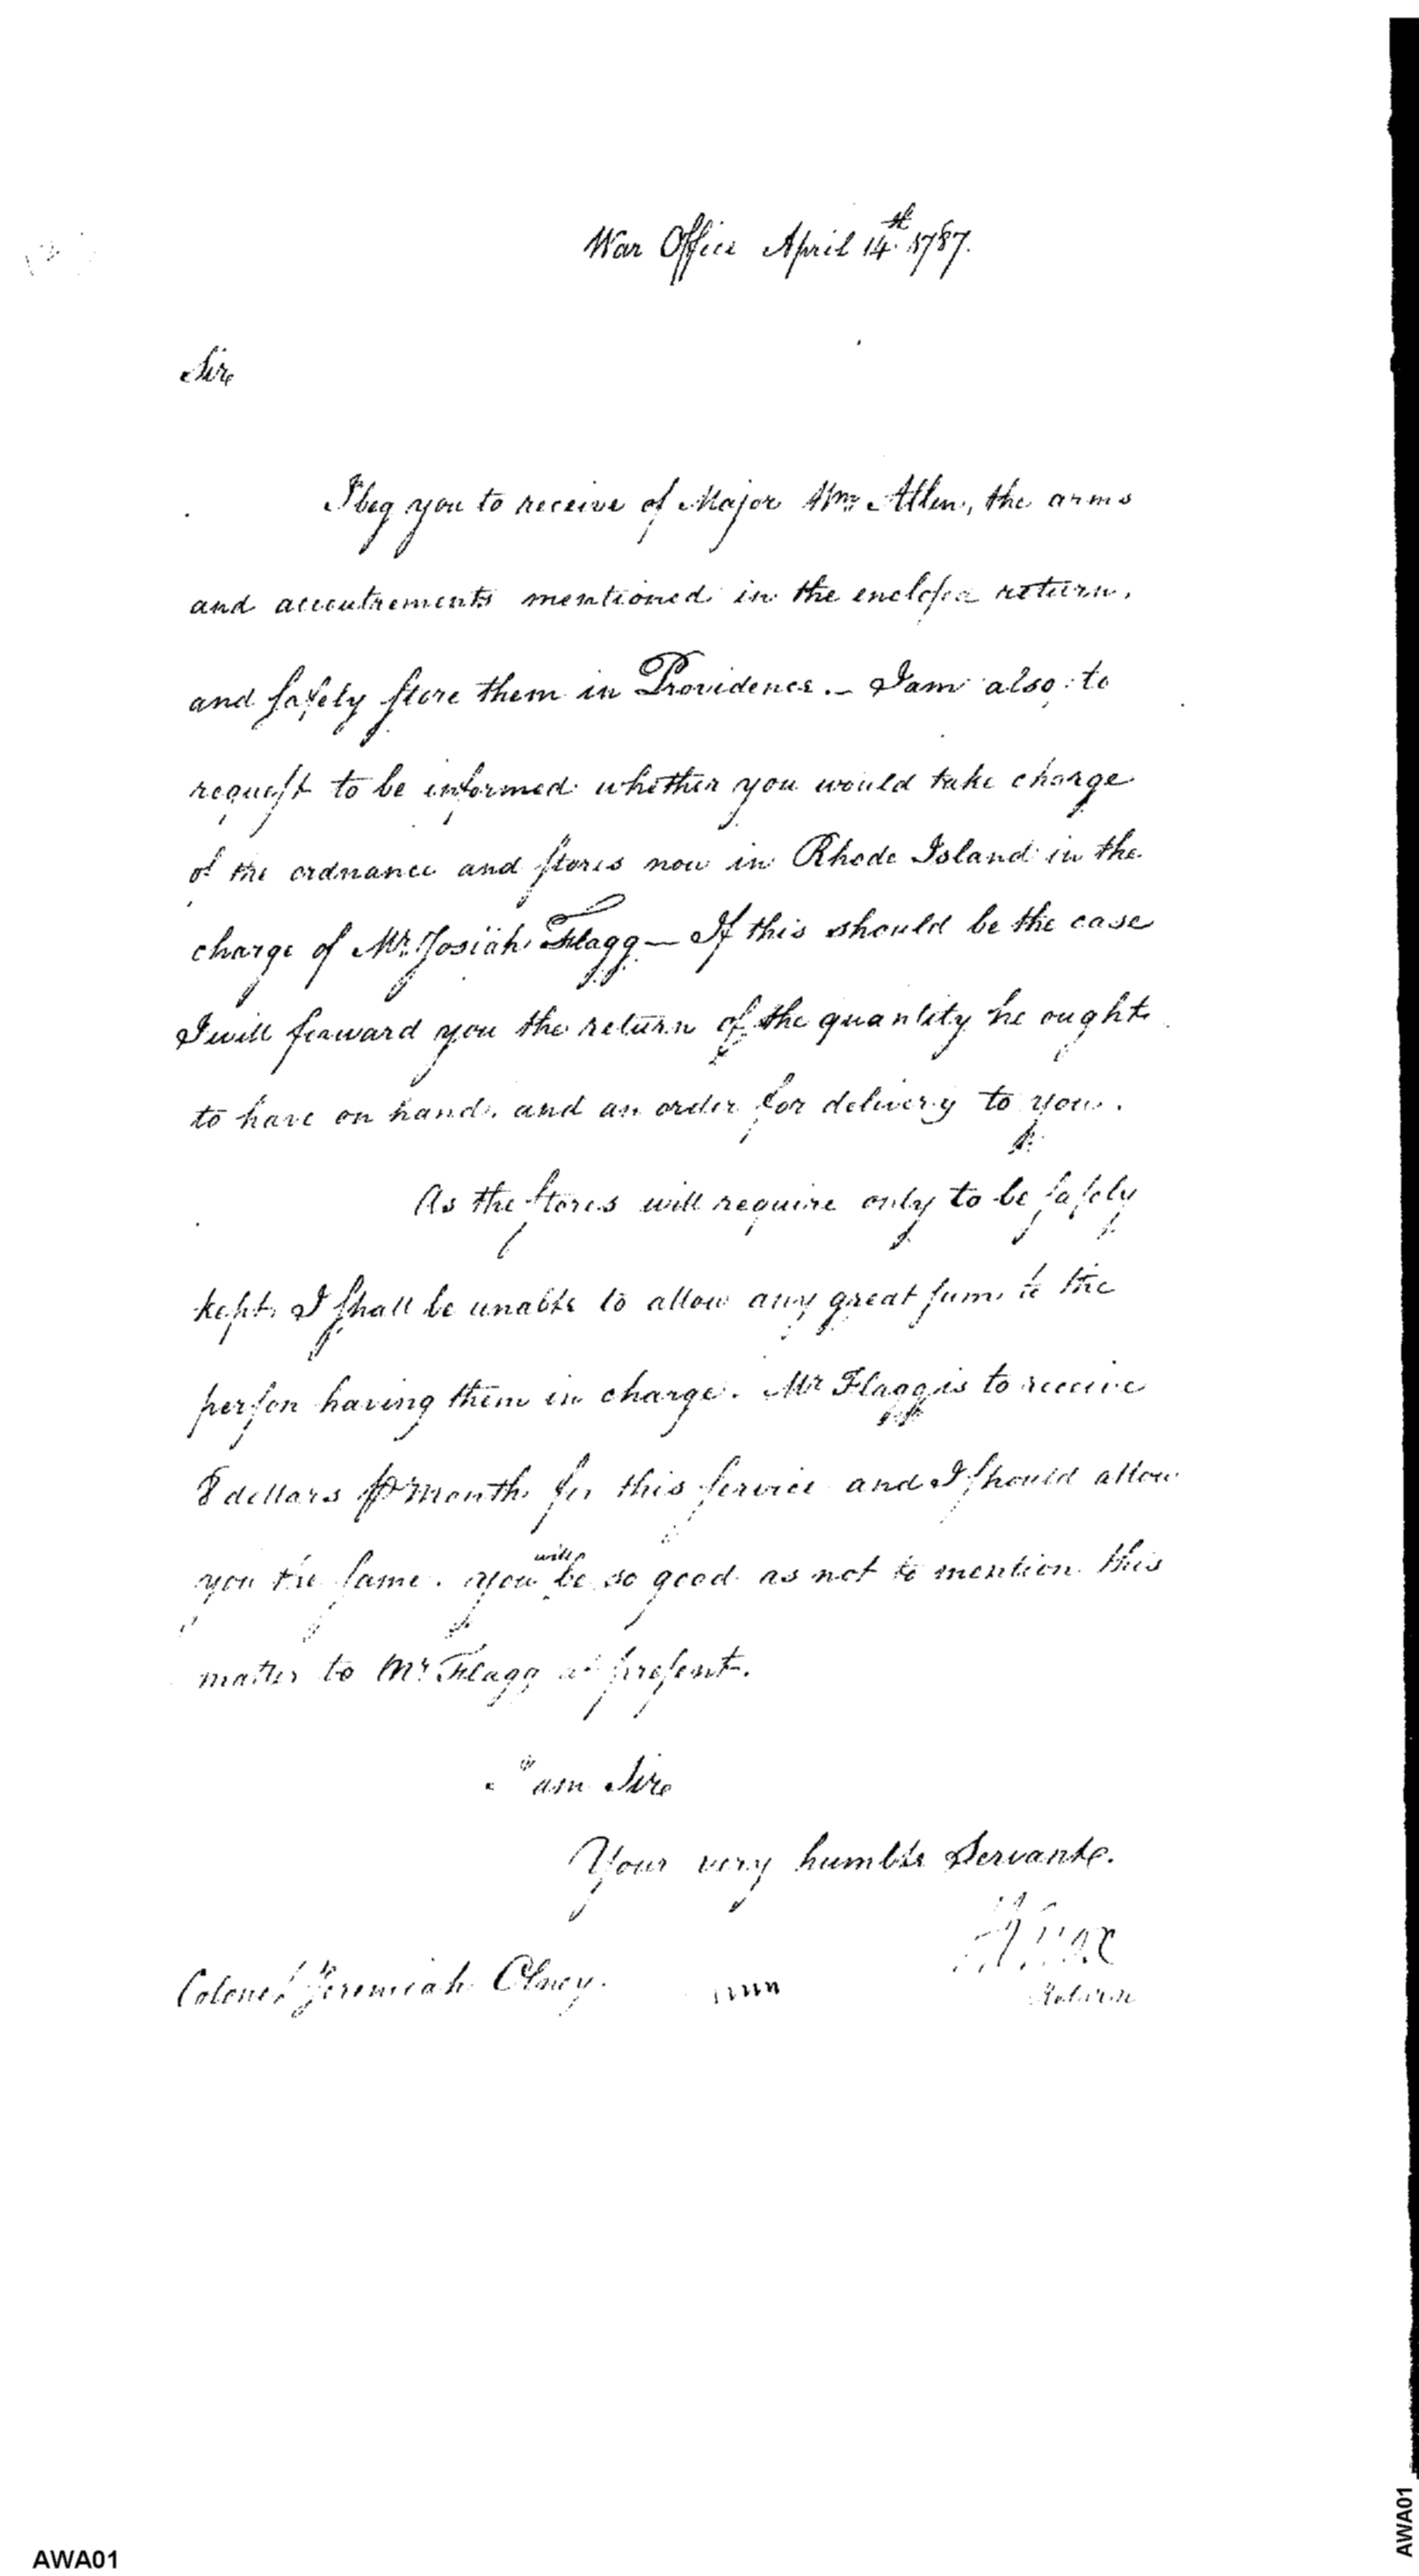 War Office April 14th 1787.
Sir
I beg you to receive of Major Wm Allen, the arms
and accoutrements mentioned in the enclosed return,
and safely store them in Providence. – I am also to
request to be informed whether you would take charge
of the ordnance and stores now in Rhode Island in the
charge of Mr. Josiah Flagg — If this should be the case
I will forward you the return of the quantity he ought
to have on hand, and an order for delivery to you.
As the stores will require only to be safely
kept, I shall be unable to allow any great sum to the
person having them in charge. Mr Flagg is to receive
8 dollars pr month for this service and I should allow
will
you the same. you be so good as not to mention this
matter to Mr Flagg at present.
I am Sir
Your very humble Servant.
HKnox
Colonel Jeremiah Olney.
AWA01
AWA01